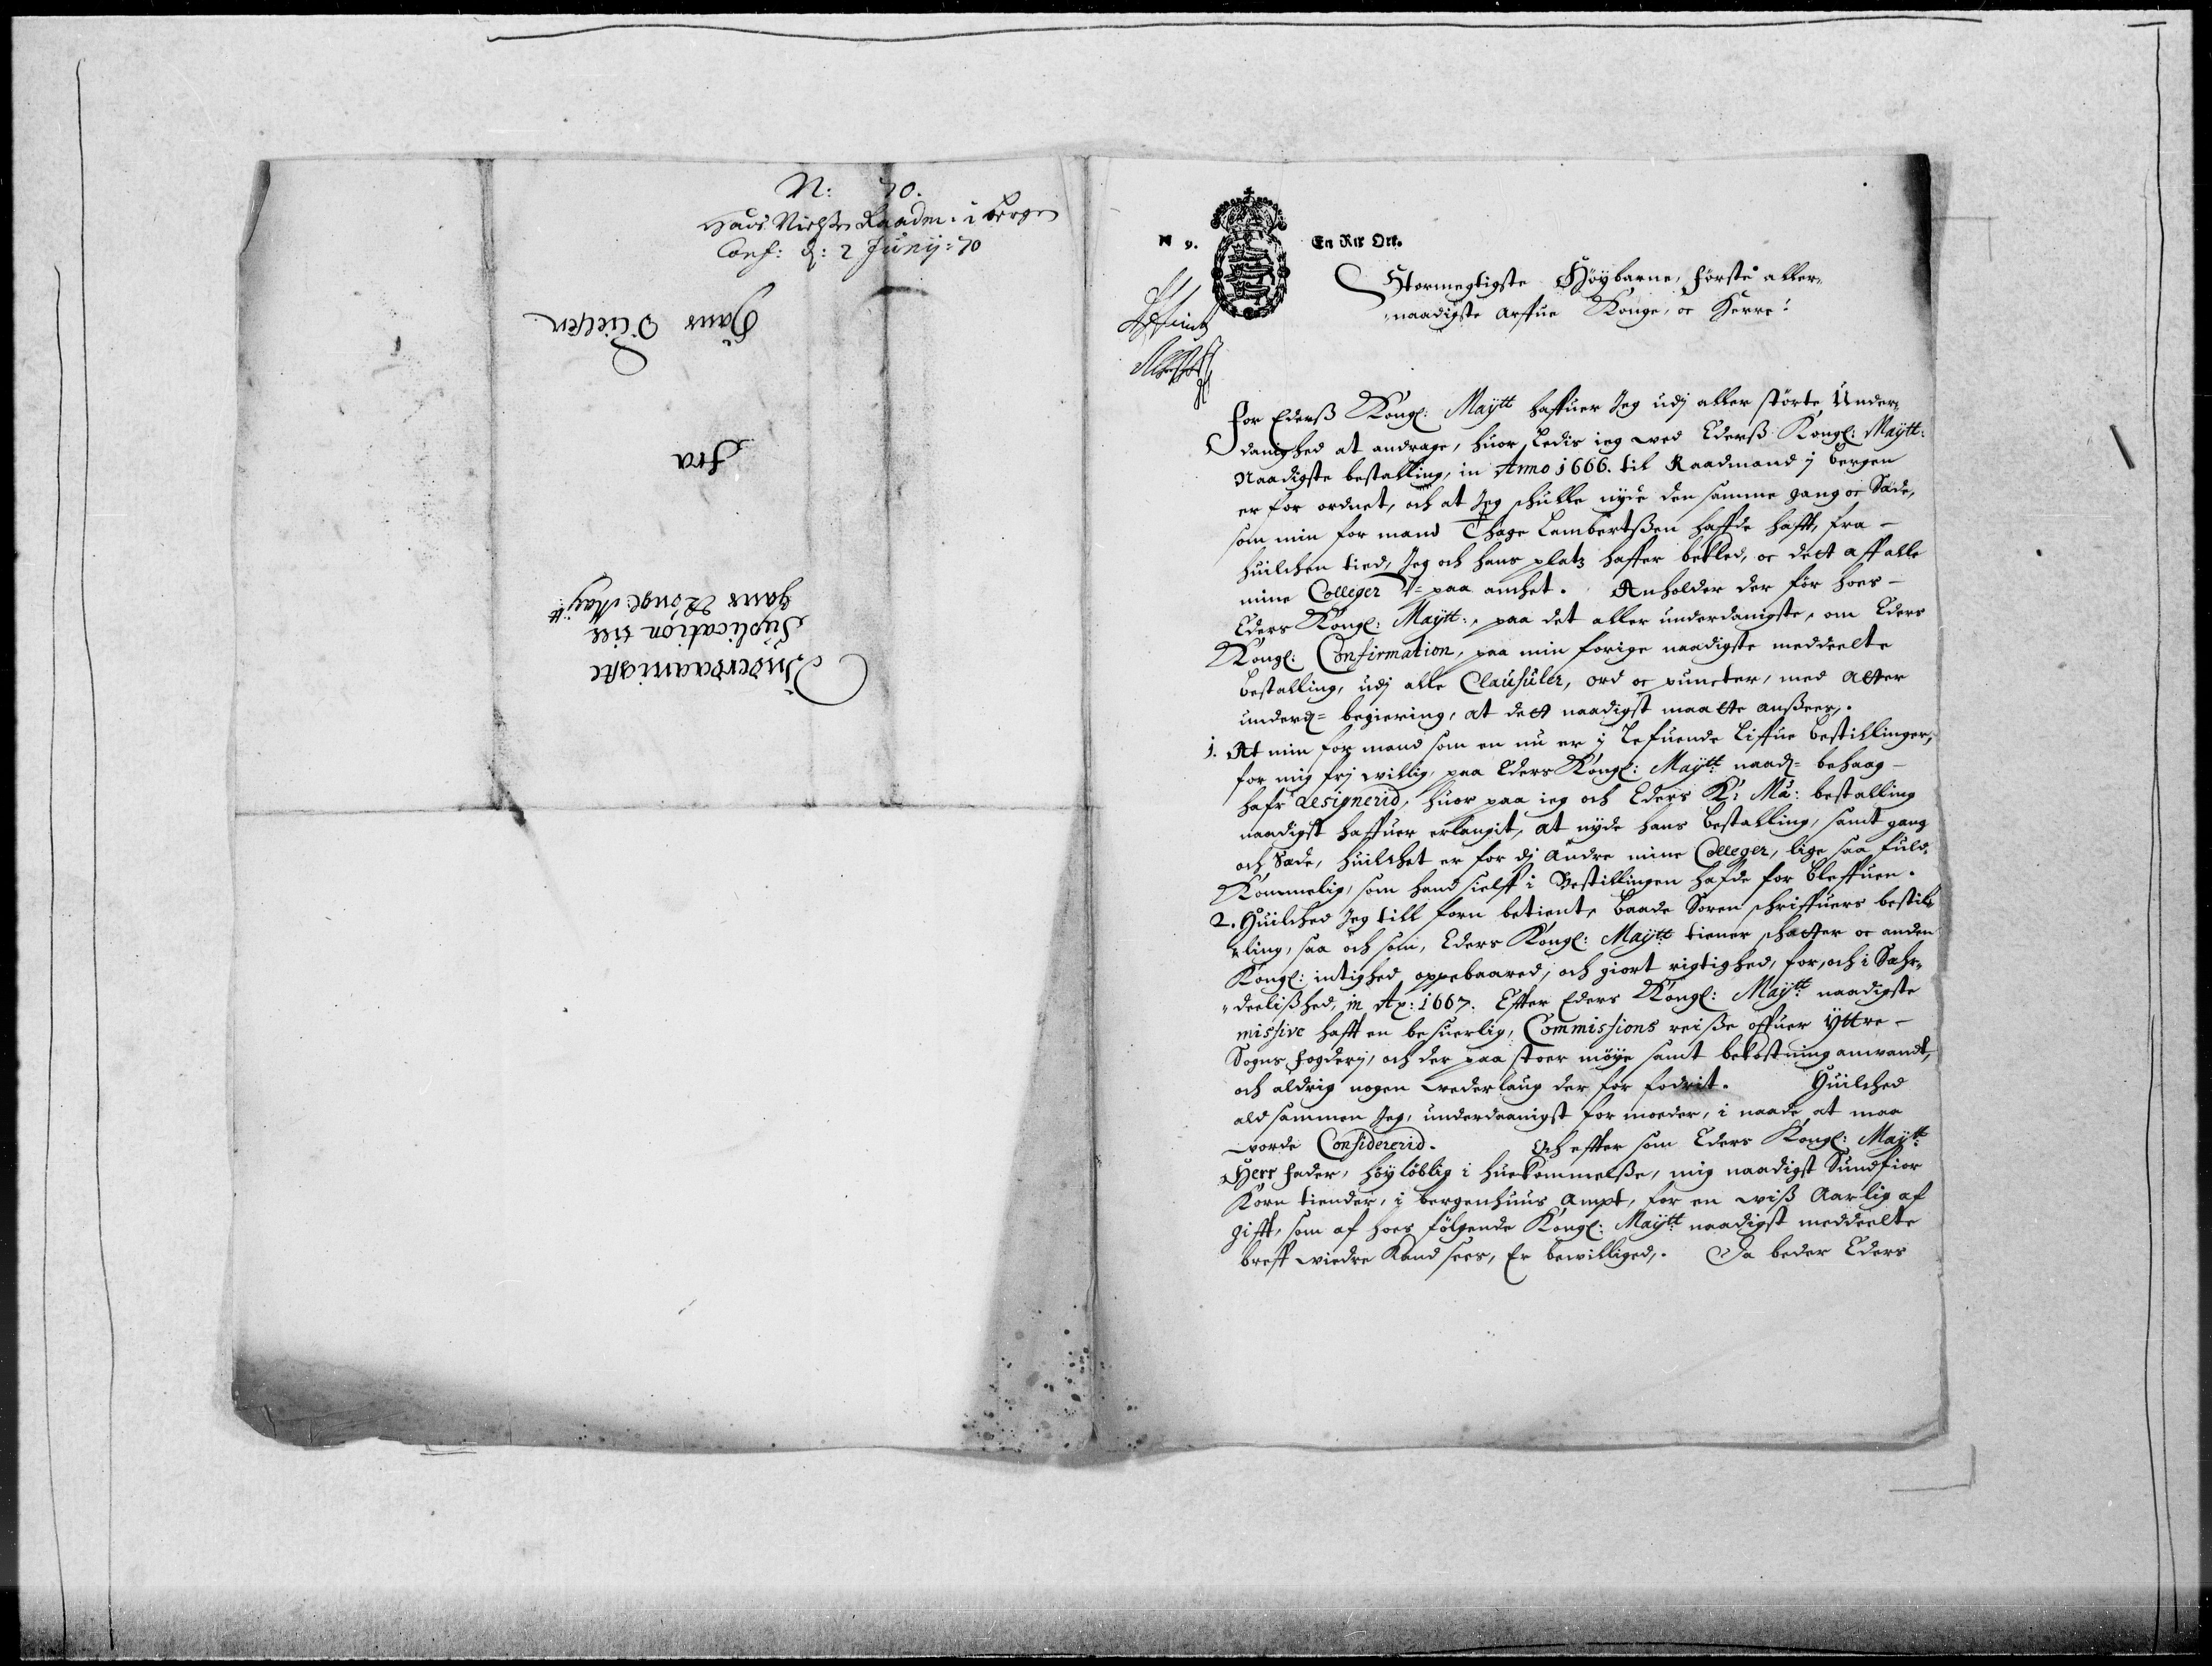 N: 70.
Hans Nielßen Raadm: i Bergen
Conf: d: 2 Junij: 70
Underdaanigste
Suplication till
Hans Kongl: Maytt
fra
Hans Nielsen
N 9.
En Rix Ort.
Stormegtigste Høybarne, Første aller„
„naadigste Arffue Konge, oc Herre!
For Ederß Kongl: Maytt haffuer Jeg udj aller störte Under„
danighed at andrage, huor ledis ieg ved Ederß Kongl: Maytt:
Naadigste bestalling, in Anno 1666. til Raadmand j Bergen
er for ordnet, och at Jeg schulle nyde den samme gang oc Sæde,
som min for mand Thage Lambertßen haffde hafft, fra –
huilchen tied, Jeg och hans platz haffer bekled, oc dett aff alle
mine Colleger paa anhet. Anholder der før hoes –
Eders Kongl: Maytt:, paa det aller underdanigste, om Eders
Kongl: Confirmation, paa min forige naadigste meddeelte
bestalling, udj alle Clausuler, ord oc puncter, med atter
underd= begiering, at dett naadigst maatte anßeer,.
1. At min for mand som en nu er j Lefuende Liffue bestillinger,
for mig frj villig, paa Eders Kongl: Maytt: naad= behaag –
hafr Resignerid, huor paa ieg och Eders K: Ma: bestalling
naadigst haffuer erlangit, at nyde hans bestalling, samt gang
och Sæde, huilchet er for dj andre mine Colleger, lige saa fuld„
Kommelig, som hand sielff i Bestillingen hafde for bleffuen.
2. Huilched Jeg till forn betient, baade Soren schriffuers bestil„
„ling, saa och som, Eders Kongl: Maytt tiener schatter oc anden
Kongl: intighed oppebaared, och giort rigtighed, for, och i Sær„
„deelißhed, in Ao: 1667. Efter Eders Kongl: Maytt: naadigste
missive hafft en besuerlig, Commissions reiße offuer Yttre –
Sogns fogderj, och der paa stoer møye samt bekostning anvandt,
och aldrig nogen vederlaug der for fodrit. Huilched
ald sammen Jeg, underdaanigst for moeder, i naade at maa
vorde Considererid. Och effter som Eders Kongl: Maytt:
Herr Fader, høyløblig i huekommelße, mig naadigst Sundfior
Korn tiender, i bergenhuus Ampt, for en viß Aarlig af
gifft, som af hoes følgende Kongl: Maytt: naadigst meddeelte
breff viedre Kand sees, Er bewilliged,. Da beder Eders